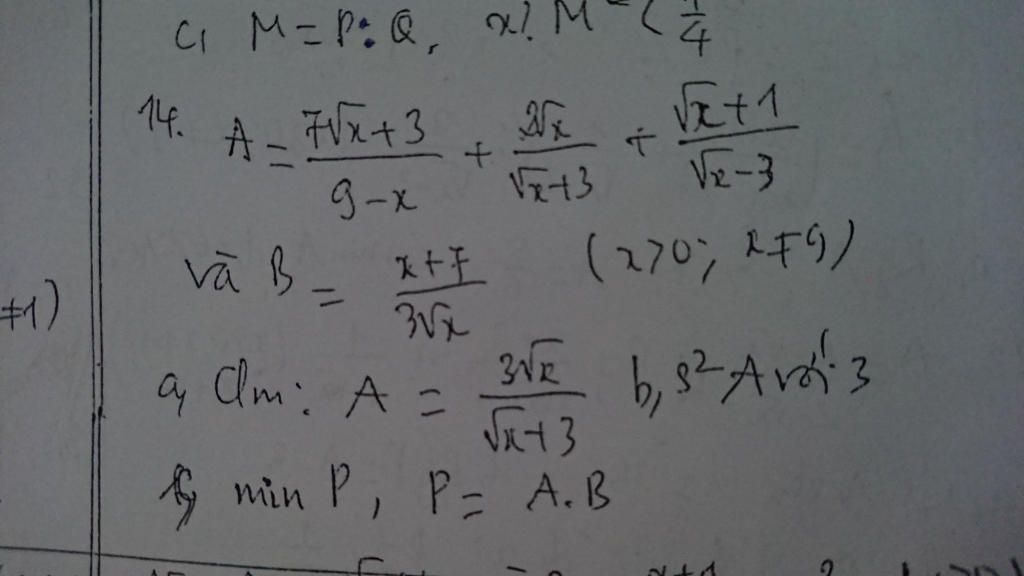 c, M = P : Q, x? M² < 1/4
14. A = (7√x + 3)/(9 - x) + 2√x/(√x + 3) + (√x + 1)/(√x - 3)
và B = (x + 7)/(3√x) (x > 0; x ≠ 9)
≠ 1)
a, Clm: A = 3√x/(√x + 3) b, s² A với 3
c, min P, P = A.B